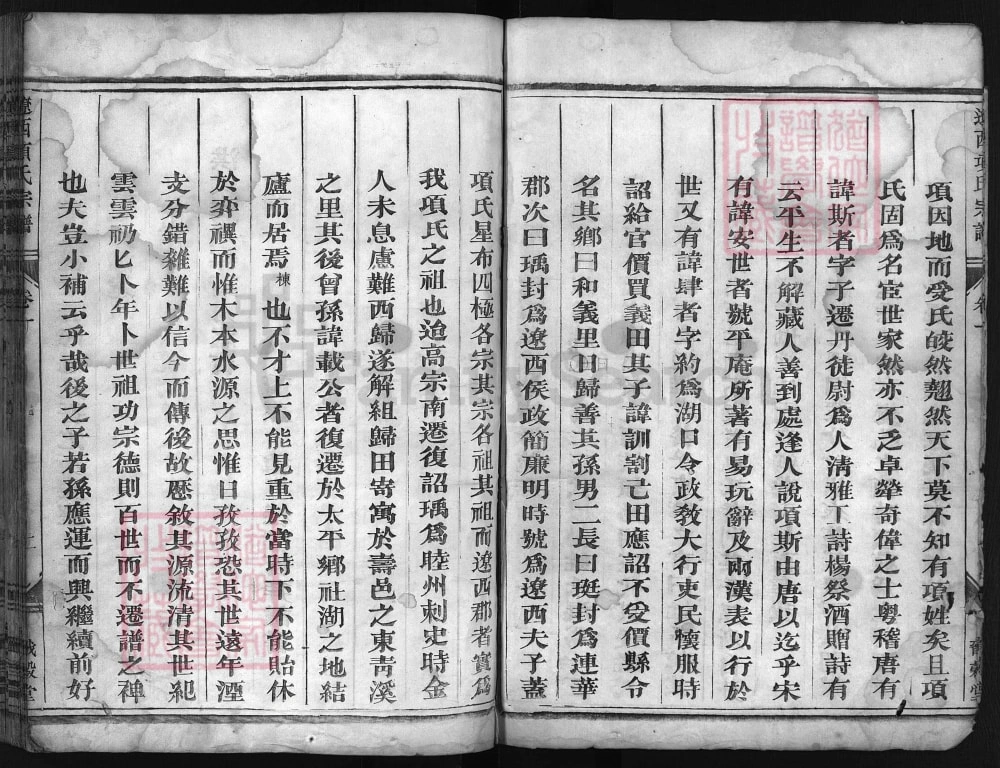 項因地而受氏皎然翹然天下莫不知有項姓矣且項
氏固爲名宦世家然亦不乏卓犖奇偉之士粵稽唐有
諱斯者字子遷丹徒尉爲人清雅工詩楊祭酒贈詩有
云平生不解藏人善到處逢人說項斯由唐以迄乎宋
有諱安世者號平庵所著有易玩辭及兩漢表以行於
世又有諱肆者字約爲湖口令政敎大行吏民懷服時
詔給官價買義田其子諱訓割己田應詔不受價縣令
名其鄉曰和義里曰歸善其孫男二長曰珽封爲連華
郡次曰瑀封爲遼西侯政簡廉明時號爲遼西夫子蓋
項氏星布四極各宗其宗各祖其祖而遼西郡者實爲
我項氏之祖也迨高宗南遷復詔瑀爲睦州刺史時金
人未息慮難西歸遂解組歸田寄寓於壽邑之東靑溪
之里其後曾孫諱載公者復遷於太平鄉社湖之地結
廬而居焉棟也不才上不能見重於當時下不能貽休
於弈禩而惟木本水源之思惟日孜孜恐其世遠年湮
支分錯雜難以信今而傳後故歷敘其源流清其世紀
雲雲礽匕卜年卜世祖功宗德則百世而不遷譜之裨
也夫豈小補云乎哉後之子若孫應運而興繼續前好
遼西項氏宗譜
卷一